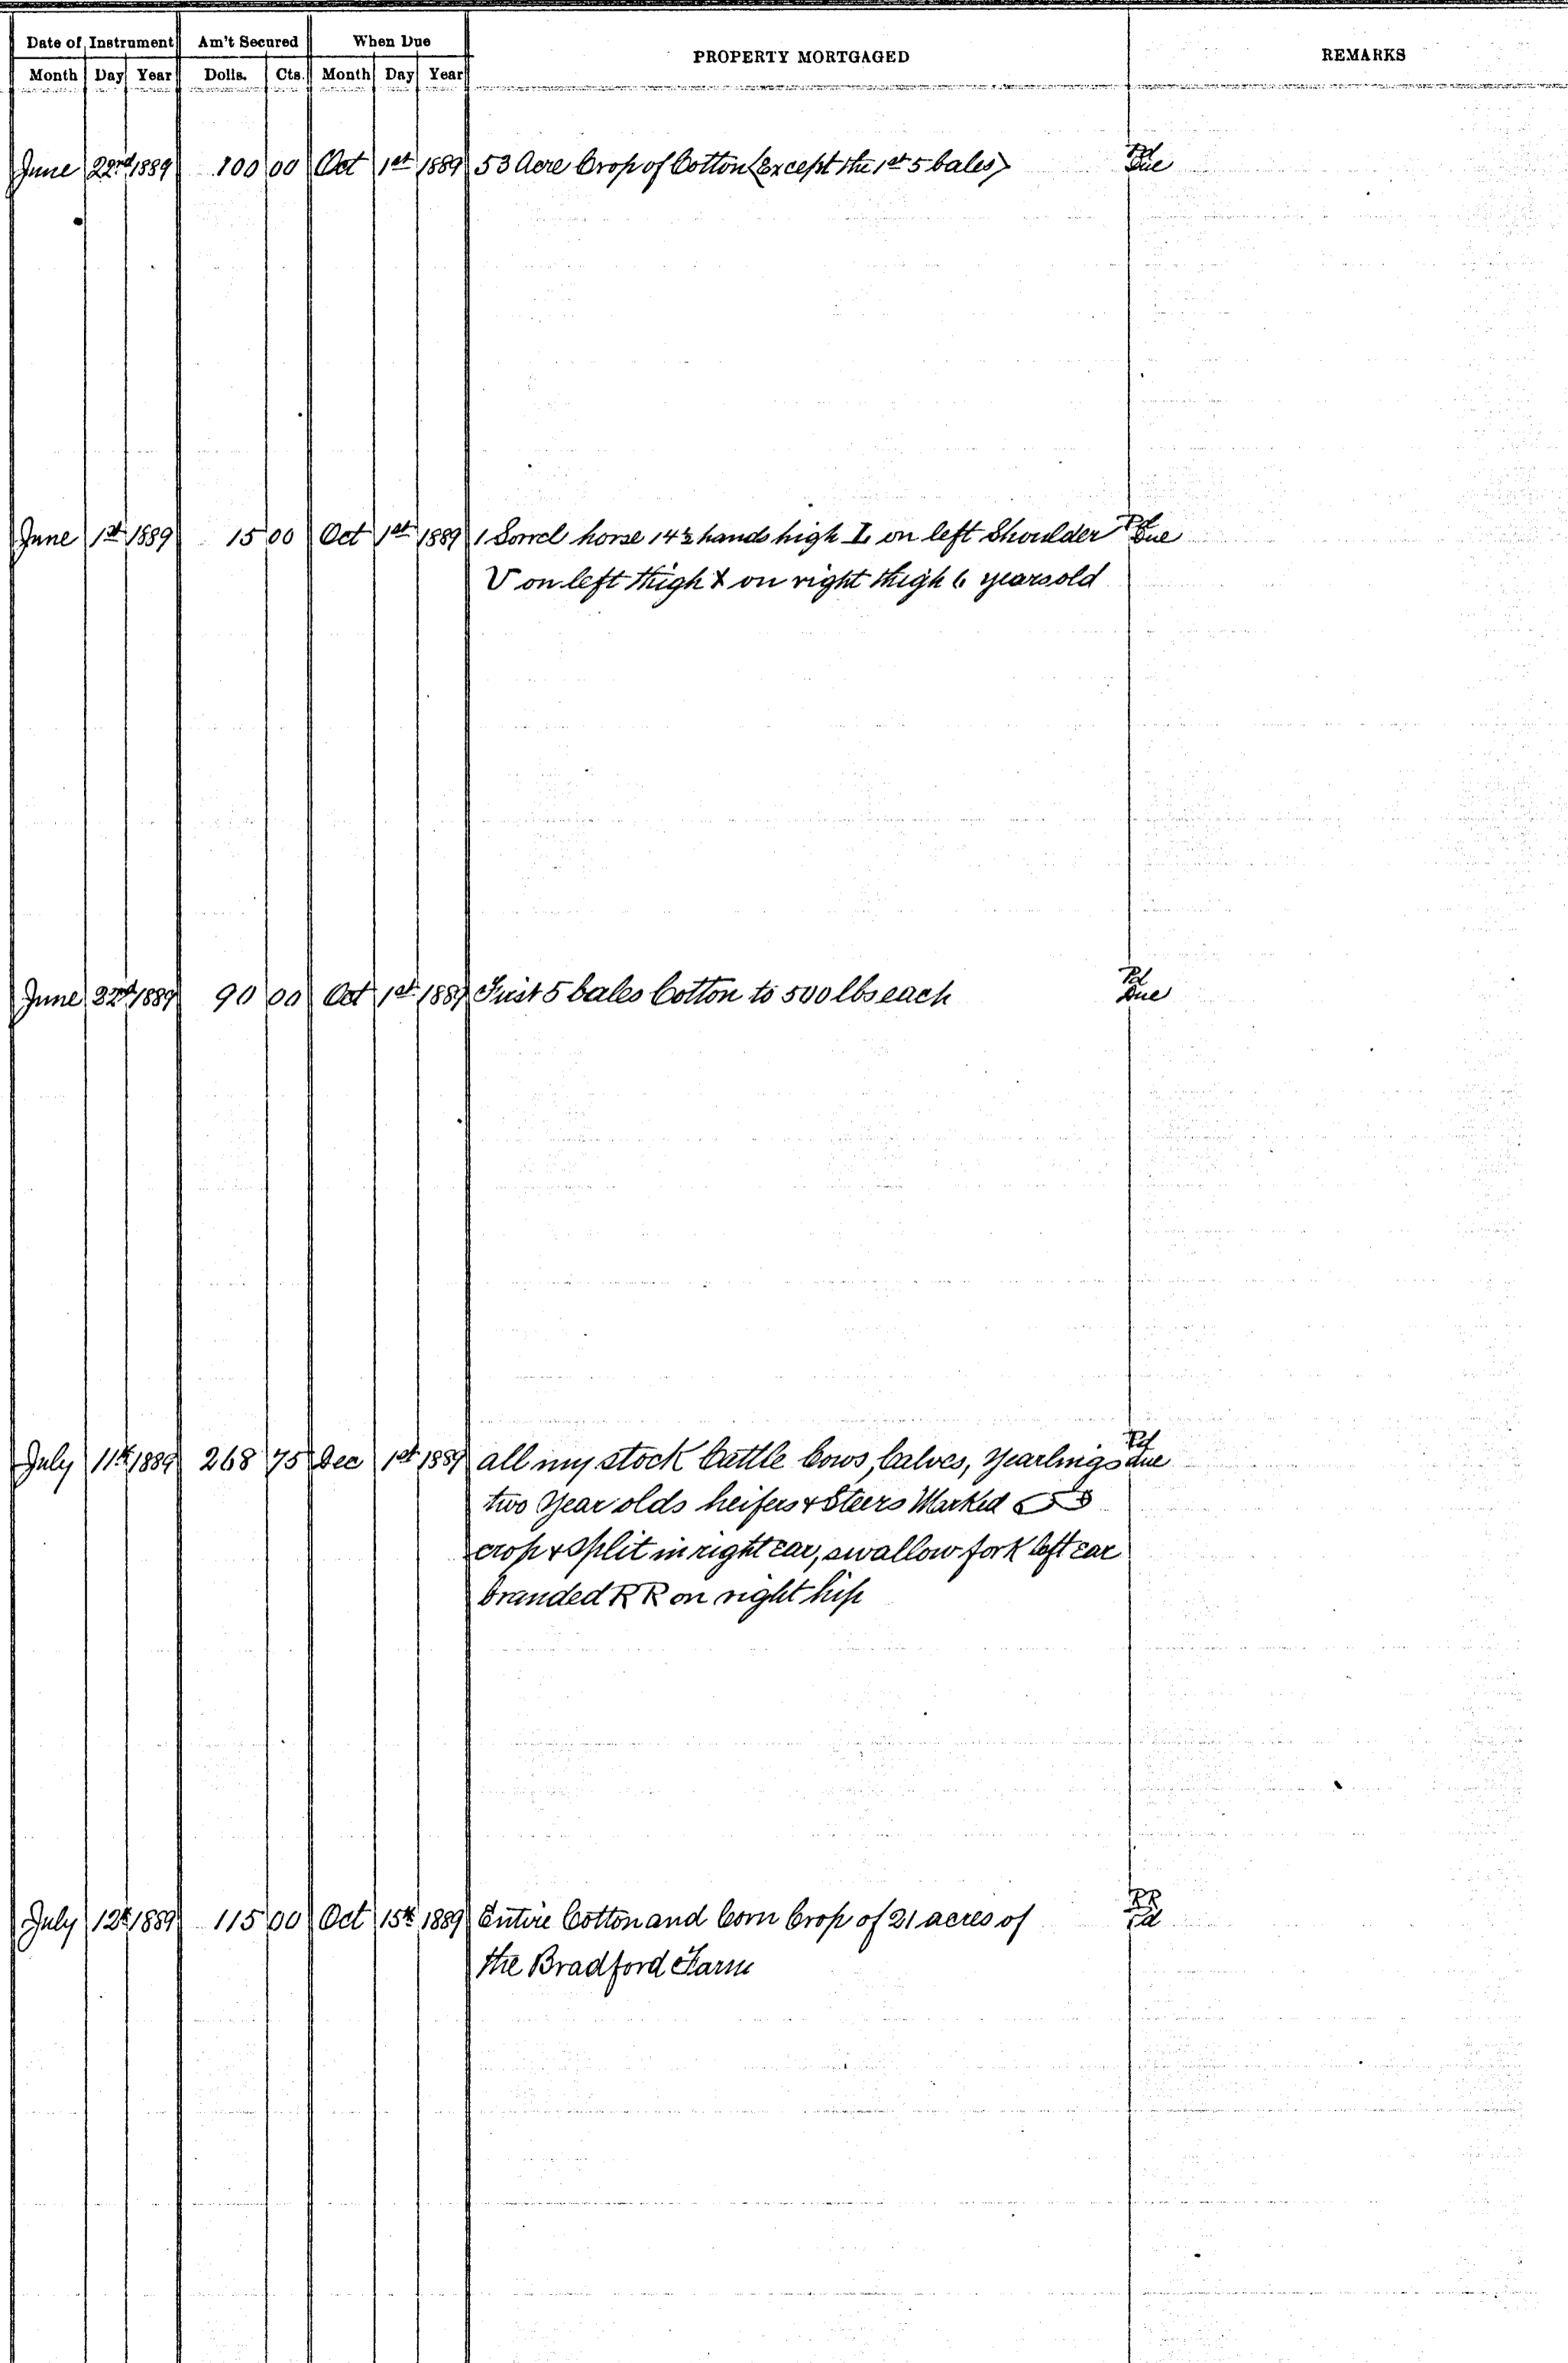 Date of Instrument Am't Secured When Due PROPERTY MORTGAGED REMARKS
Month Day Year Dolls. Cts. Month Day Year
June 22nd 1889 100 00 Oct 1st 1889 53 Acre Crop of Cotton (except the 1st 5 bales) Due
June 1st 1889 15 00 Oct 1st 1889 1 Sorrel horse 14½ hands high I on left Shoulder Due
V on left thigh & on right thigh 6 years old
June 22nd 1889 90 00 Oct 1st 1889 First 5 bales Cotton to 500 lbs each Due
July 11th 1889 268 75 Dec 1st 1889 all my stock Cattle Cows, Calves, Yearlings due
two Year olds heifers & Steers Marked
crop & split in right ear, swallow fork left ear
branded R R on right hip
July 12th 1889 115 00 Oct 15th 1889 Entire Cotton and Corn Crop of 21 acres of
the Bradford Farm